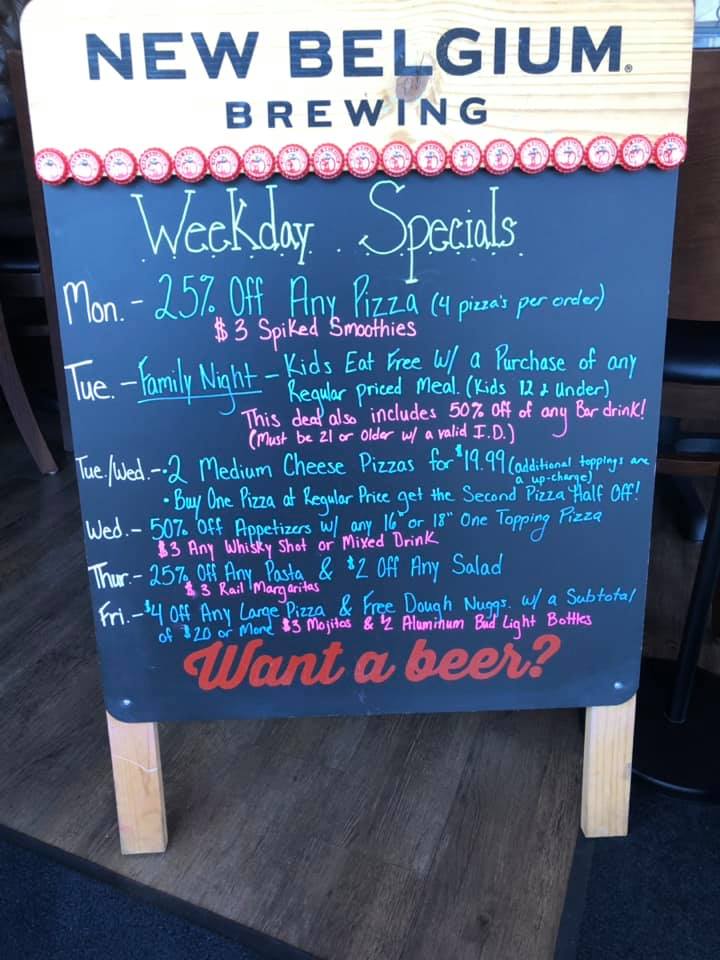 NEW BELGIUM®
BREWING
Weekday Specials
Mon. - 25% Off Any Pizza (4 pizza's per order)
$3 Spiked Smoothies
Tue. - Family Night - Kids Eat Free W/ a Purchase of any
Regular priced Meal. (Kids 12 & Under)
This deal also includes 50% Off of any Bar drink!
(Must be 21 or Older w/ a valid I.D.)
Tue./Wed. - • 2 Medium Cheese Pizzas for $19.99 (additional toppings are
a up-charge)
• Buy One Pizza at Regular Price get the Second Pizza Half Off!
Wed. - 50% Off Appetizers w/ any 16" or 18" One Topping Pizza
$3 Any Whisky Shot or Mixed Drink
Thur. - 25% Off Any Pasta & $2 Off Any Salad
$3 Rail Margaritas
Fri. - $4 Off Any Large Pizza & Free Dough Nuggs. w/ a Subtotal
of $20 or More $3 Mojitos & $2 Aluminum Bud Light Bottles
Want a beer?